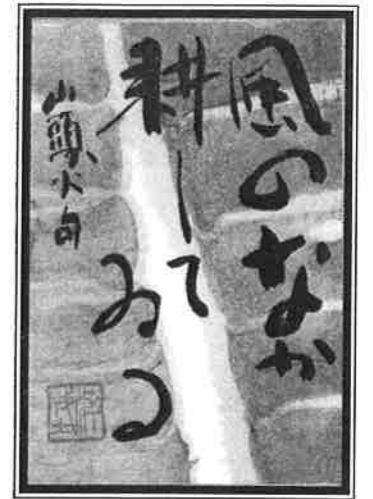 風のなか
耕して
ゐる
山頭火句